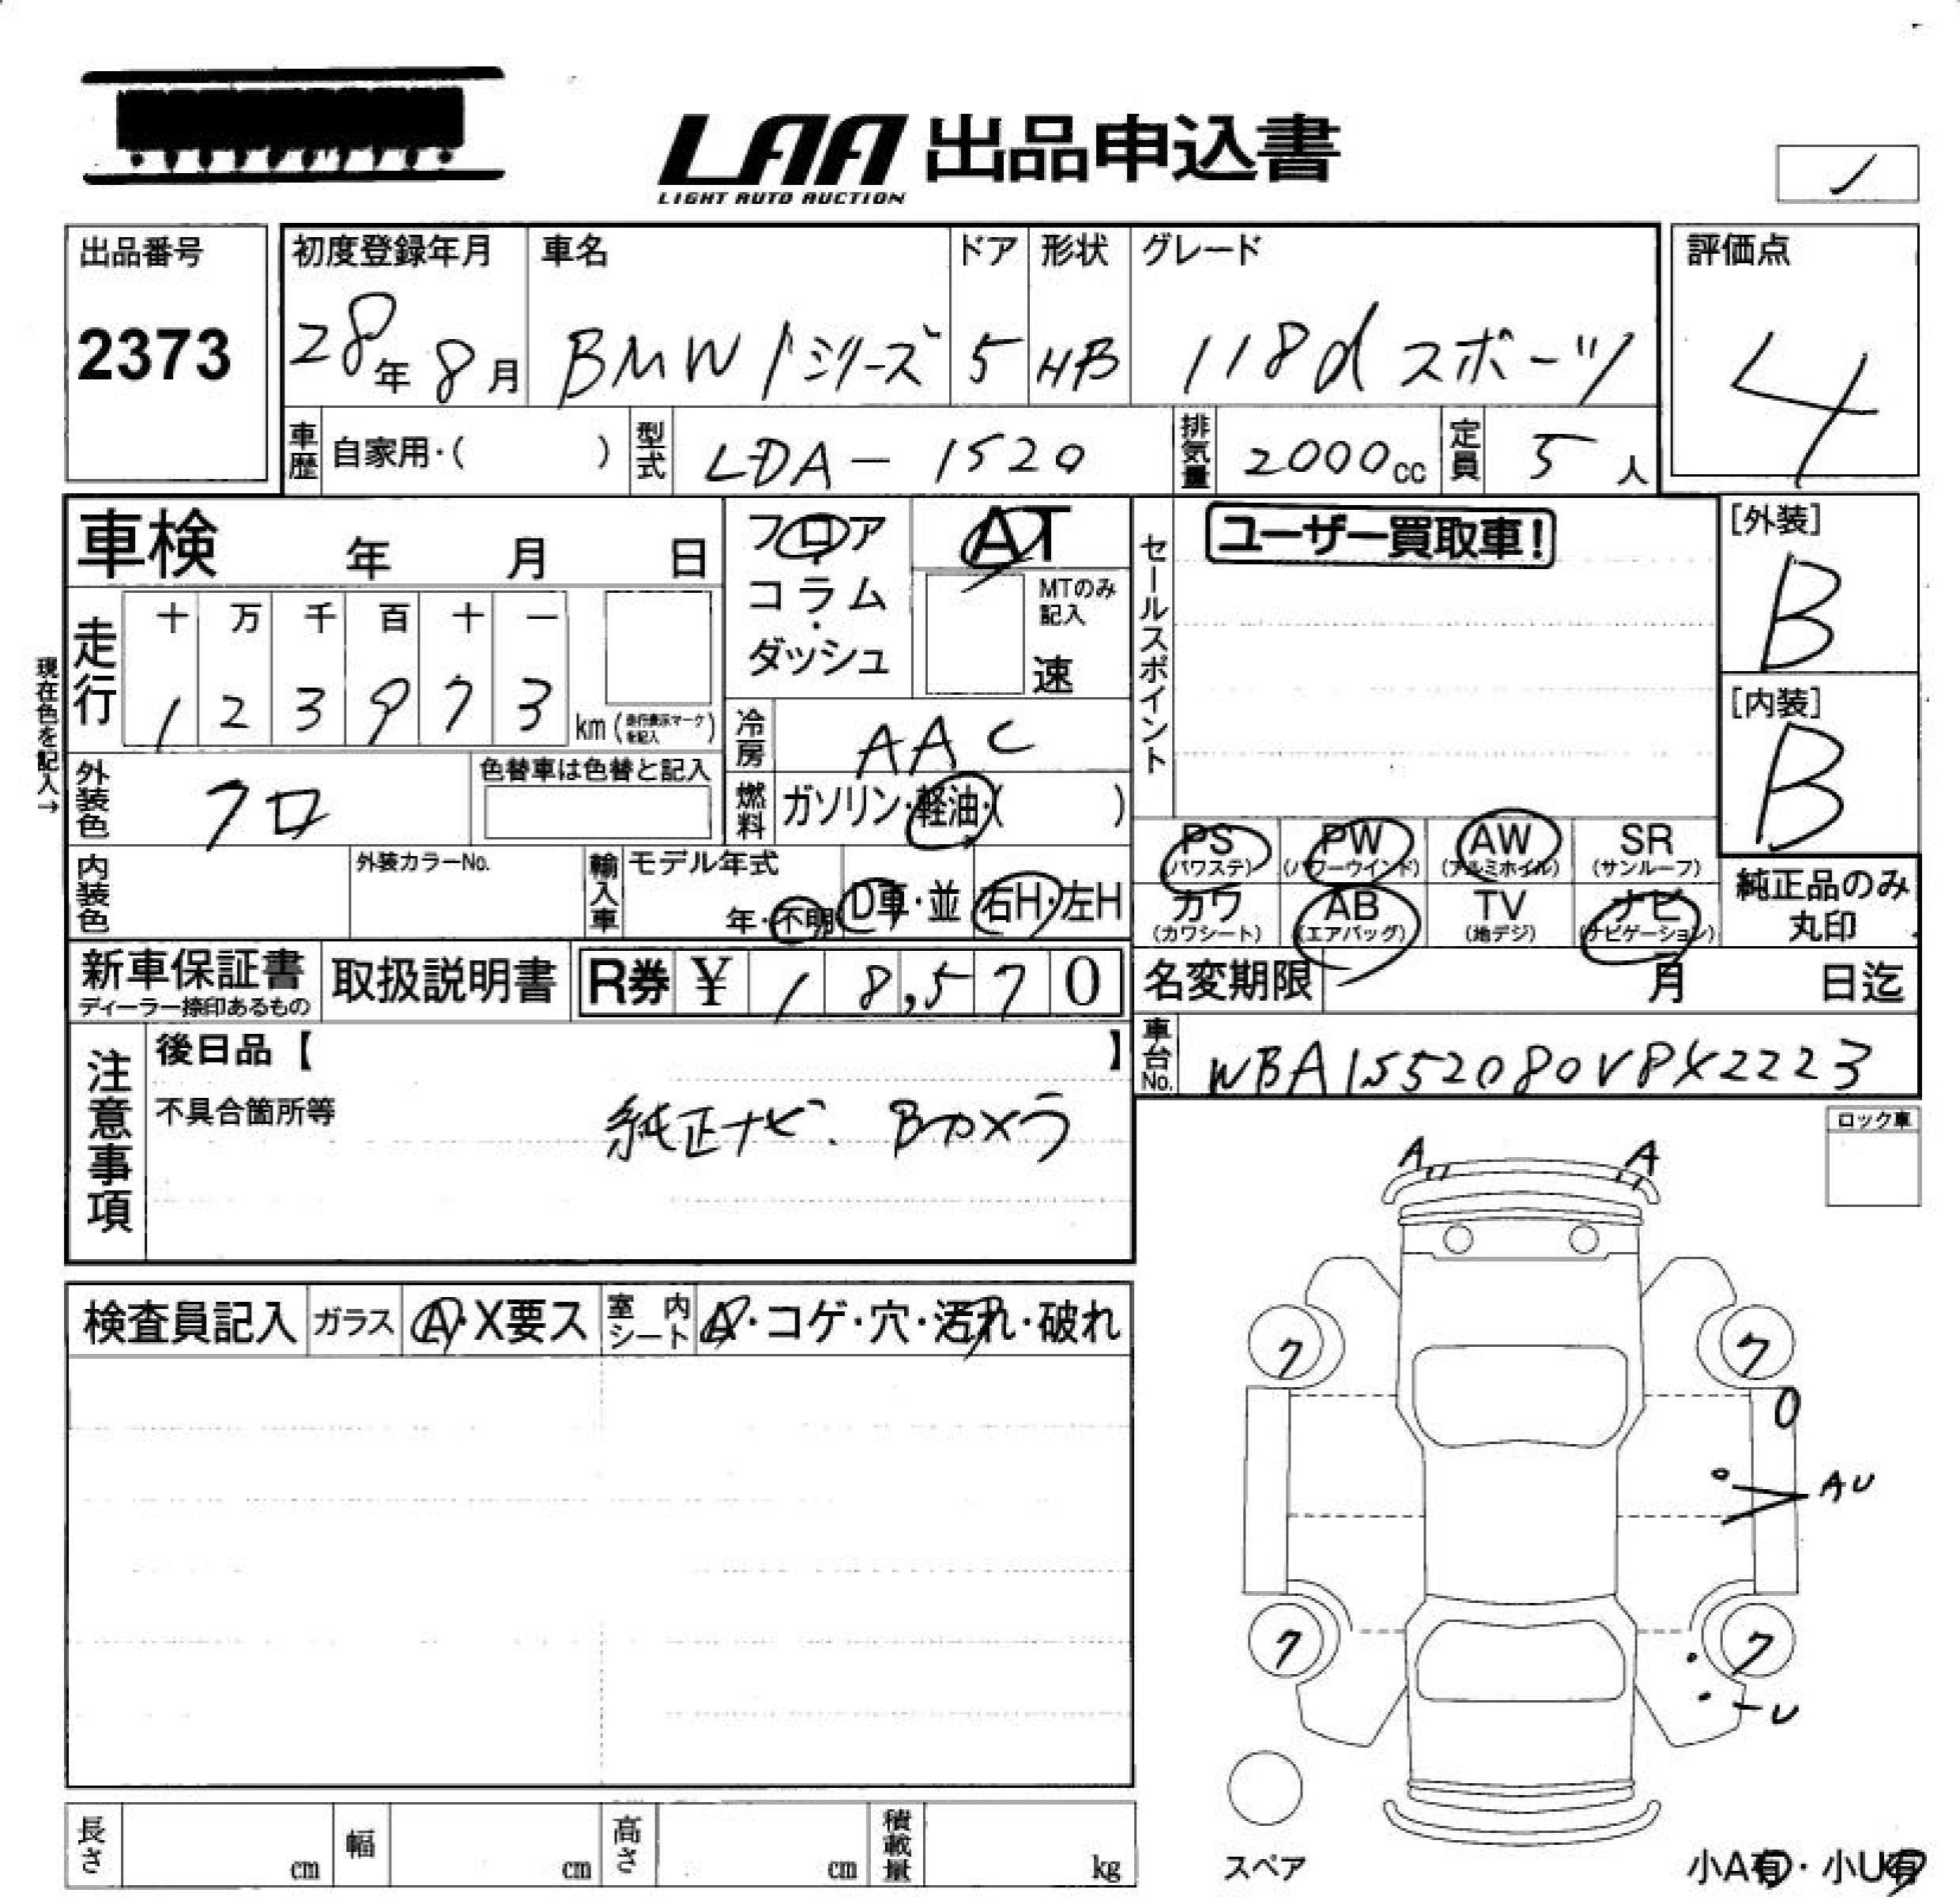 LAA 出品申込書
LIGHT AUTO AUCTION
出品番号
2373
初度登録年月
28年 8月
車名
BMW 1シリーズ
ドア
5
形状
HB
グレード
118d スポーツ
評価点
4
車歴 自家用・( )
型式 LDA-1S20
排気量 2000cc
定員 5人
車検 年 月 日
フロア・コラム・ダッシュ
AT
MTのみ記入
速
セールスポイント
ユーザー買取車!
[外装]
B
[内装]
B
現在色を記入→
走行
十 万 千 百 十 一
1 2 3 9 7 3 km (走行表示マークを記入)
冷房 AAC
外装色 クロ
色替車は色替と記入
燃料 ガソリン・軽油・( )
内装色
外装カラーNo.
輸入車
モデル年式
年・不明
D車・並
右H・左H
PS (パワステ)
PW (パワーウインド)
AW (アルミホイル)
SR (サンルーフ)
カワ (カワシート)
AB (エアバッグ)
TV (地デジ)
ナビ (ナビゲーション)
純正品のみ丸印
新車保証書
ディーラー捺印あるもの
取扱説明書
R券 ¥ 18,570
名変期限 月 日迄
車台No. WBA1S52080VPX2223
注意事項
後日品【 】
不具合箇所等
純正ナビ. Bカメラ
ロック車
A A
ク ク
O
AU
ク ク
U
検査員記入
ガラス A・X要ス
室内シート A・コゲ・穴・汚れ・破れ
長さ cm
幅 cm
高さ cm
積載量 kg
スペア
小A有・小U有